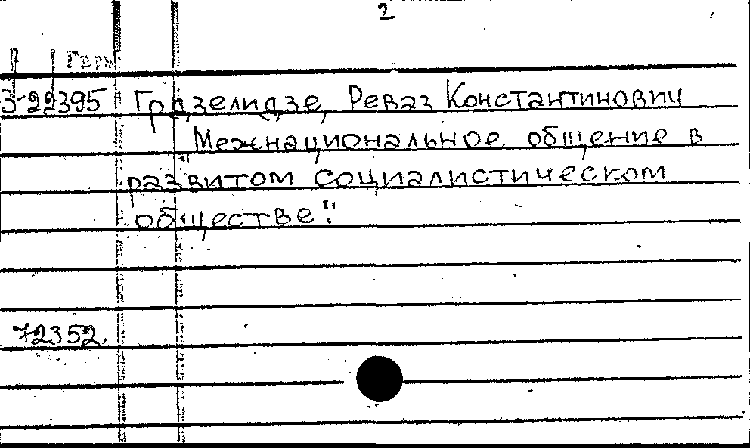 2
3-22395 Грдзелидзе, Реваз Константинович
"Межнациональное общение в
развитом социалистическом
обществе".
72352.